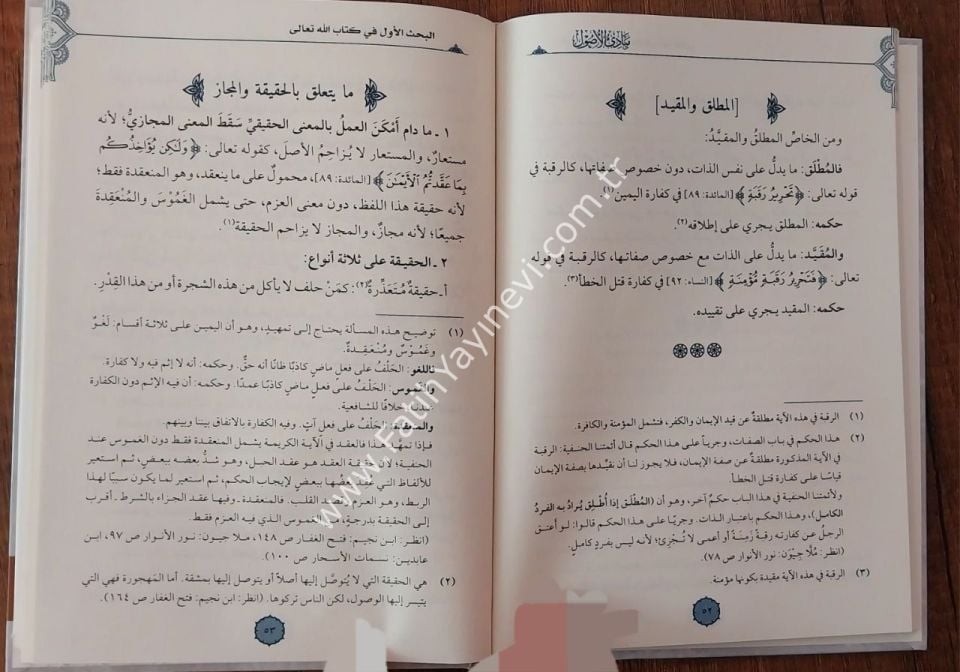 مبادئ الأصول
[المطلق والمقيد]
ومن الخاص المطلق والمقيَّد:
فالمُطْلَق: ما يدلُّ على نفس الذات، دون خصوص صفاتها، كالرقبة في
قوله تعالى: ﴿تَحْرِيرُ رَقَبَةٍ﴾ [المائدة: ٨٩] في كفارة اليمين(١).
حكمه: المطلق يجري على إطلاقه(٢).
والمُقَيَّد: ما يدلُّ على الذات مع خصوص صفاتها، كالرقبة في قوله
تعالى: ﴿فَتَحْرِيرُ رَقَبَةٍ مُؤْمِنَةٍ﴾ [النساء: ٩٢] في كفارة قتل الخطأ(٣).
حكمه: المقيد يجري على تقييده.
(١) الرقبة في هذه الآية مطلقةٌ عن قيد الإيمان والكفر، فتشمل المؤمنة والكافرة.
(٢) هذا الحكم في باب الصفات، وجرياً على هذا الحكم قال أئمتنا الحنفية: الرقبة
في الآية المذكورة مطلقةٌ عن صفة الإيمان، فلا يجوز لنا أن نقيِّدها بصفة الإيمان
قياسًا على كفارة قتل الخطأ.
ولأئمتنا الحنفية في هذا الباب حكمٌ آخر، وهو أن (المُطْلَق إذا أُطْلِق يُرادُ به الفردُ
الكامل)، وهذا الحكم باعتبار الذات. وجريًا على هذا الحكم قالوا: لو أعتق
الرجلُ عن كفارته رقبةً زَمِنَةً أو أعمى لا تُجْزِئ؛ لأنه ليس بفردٍ كامل.
(انظر: مُلَّا جِيْوَن: نور الأنوار ص ٧٨).
(٣) الرقبة في هذه الآية مقيدة بكونها مؤمنة.
٥٢
البحث الأول في كتاب الله تعالى
ما يتعلق بالحقيقة والمجاز
١ ـ ما دام أَمْكَنَ العملُ بالمعنى الحقيقيِّ سَقَطَ المعنى المجازيُّ؛ لأنه
مستعارٌ، والمستعار لا يُزاحِمُ الأصلَ، كقوله تعالى: ﴿وَلَٰكِن يُؤَاخِذُكُم
بِمَا عَقَّدتُّمُ الْأَيْمَٰنَ﴾ [المائدة: ٨٩]، محمولٌ على ما ينعقد، وهو المنعقدة فقط؛
لأنه حقيقة هذا اللفظ، دون معنى العزم، حتى يشمل الغَمُوْسَ والمُنْعَقِدةَ
جميعًا؛ لأنه مجازٌ، والمجاز لا يزاحم الحقيقة(١).
٢ ـ الحقيقة على ثلاثة أنواع:
أ ـ حقيقةٌ مُتَعَذِّرةٌ(٢): كمَنْ حلف لا يأكل من هذه الشجرة أو من هذا القِدْرِ.
(١) توضيح هذه المسألة يحتاج إلى تمهيدٍ، وهو أن اليمين على ثلاثة أقسام: لَغْوٌ
وغَمُوْسٌ ومُنْعَقِدةٌ.
فاللغو: الحَلْفُ على فعلٍ ماضٍ كاذبًا ظانًّا أنه حقٌّ. وحكمه: أنه لا إثم فيه ولا كفارة.
والغموس: الحَلْفُ على فعلٍ ماضٍ كاذبًا عمدًا. وحكمه: أن فيه الإثم دون الكفارة
عندنا، خلافًا للشافعية.
والمنعقدة: الحَلْفُ على فعلٍ آتٍ. وفيه الكفارة بالاتفاق بيننا وبينهم.
فإذا تمهَّد هذا فالعقد في الآية الكريمة يشمل المنعقدة فقط دون الغموس عند
الحنفية؛ لأن حقيقة العقد هو عقد الحبل، وهو شدُّ بعضه ببعضٍ، ثم استعير
للألفاظ التي عقد بعضُها ببعضٍ لإيجاب الحكم، ثم استعير لما يكون سببًا لهذا
الربط، وهو العزم وقصد القلب. فالمنعقدة ـ وفيها عقد الجزاء بالشرط ـ أقرب
إلى الحقيقة بدرجةٍ، من الغموس الذي فيه العزم فقط.
(انظر: ابن نجيم: فتح الغفار ص ١٤٨، ملا جيون: نور الأنوار ص ٩٧، ابن
عابدين: نسمات الأسحار ص ١٠٠)
(٢) هي الحقيقة التي لا يُتوصَّل إليها أصلًا أو يتوصل إليها بمشقة. أما المهجورة فهي التي
يتيسر إليها الوصول، لكن الناس تركوها. (انظر: ابن نجيم: فتح الغفار ص ١٦٤).
٥٣
www.FatihYayinevi.com.tr